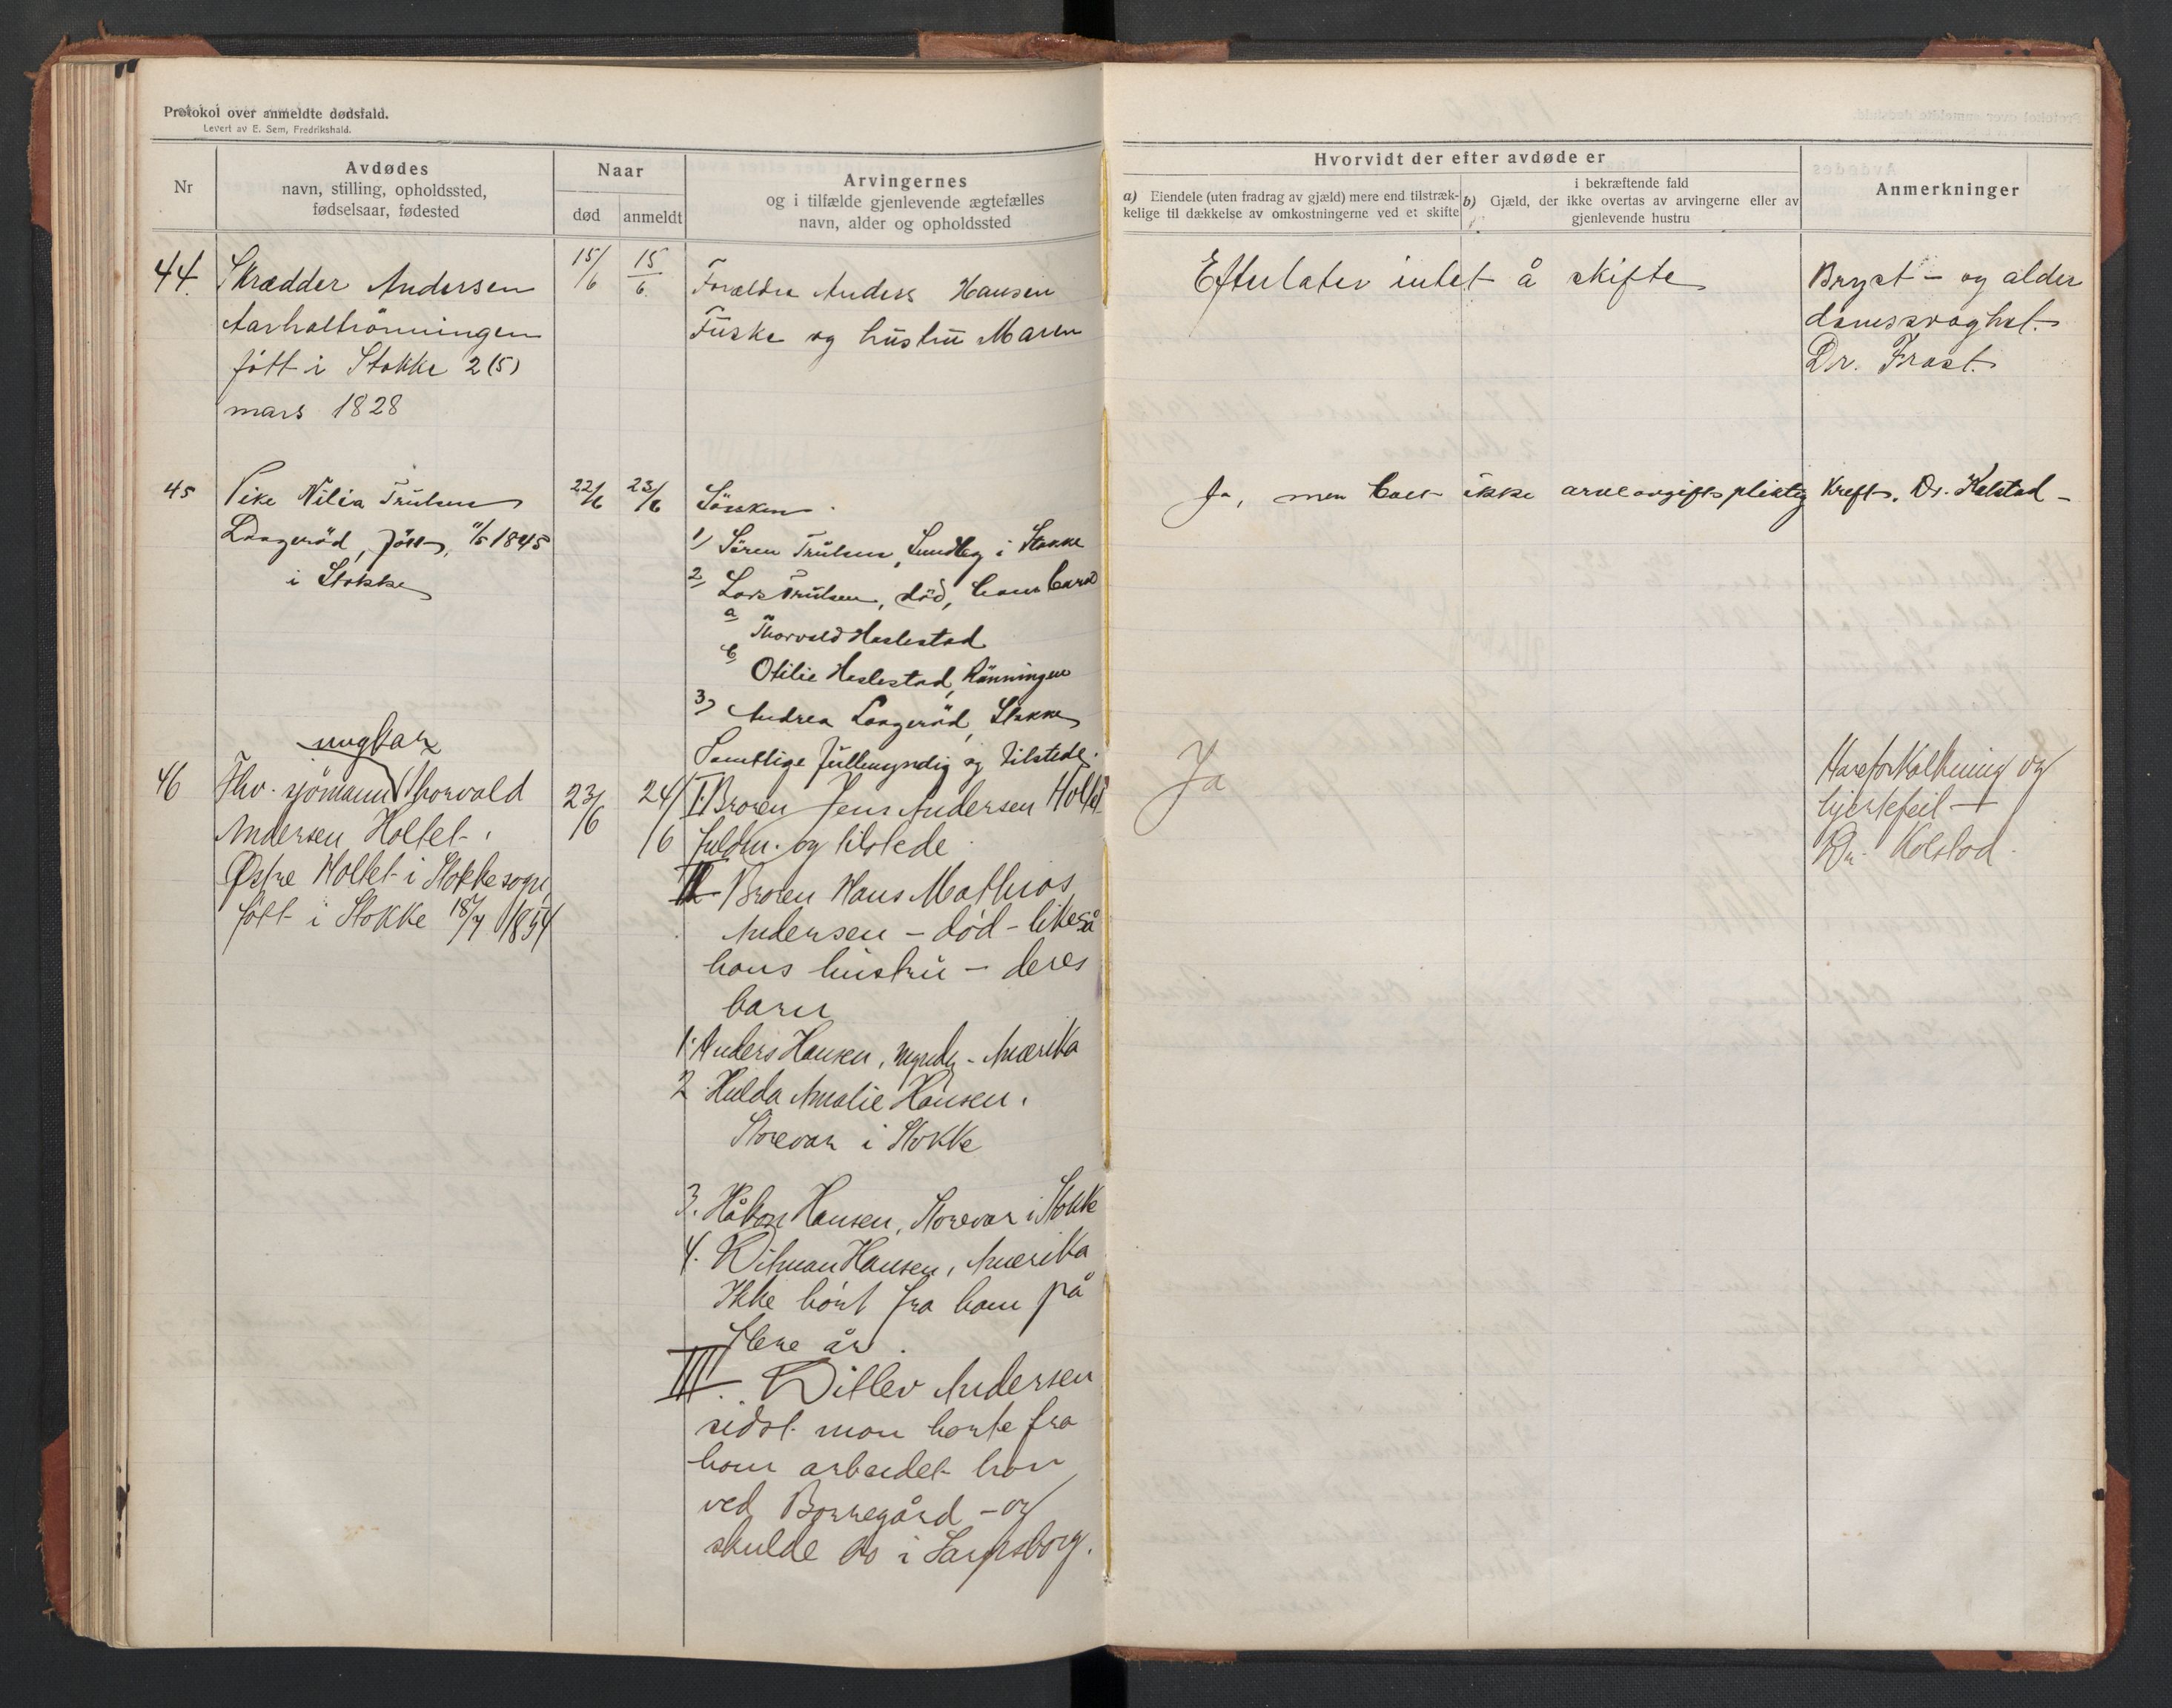 Protokol over anmeldte dødsfald.
Levert av E. Sem, Fredrikshald.
Nr
Avdødes
navn, stilling, opholdssted,
fødselsaar, fødested
Naar
død
anmeldt
Arvingernes
og i tilfælde gjenlevende ægtefælles
navn, alder og opholdssted
Hvorvidt der efter avdøde er
a) Eiendele (uten fradrag av gjæld) mere end tilstræk-
kelige til dækkelse av omkostningerne ved et skifte
i bekræftende fald
b) Gjæld, der ikke overtas av arvingerne eller av
gjenlevende hustru
Anmerkninger
44.
Skrædder Andersen
Aarholtrönningen
födt i Stokke 2(5)
mars 1828
15/6
15/6.
Forældre Anders Hansen
Fuske og hustru Maren
Efterlater intet å skifte
Bryst- og alder
domssvaghet.
Dr. Frost.
45
Pike Nilia Trulsen
Langeröd, födt 11/5 1845
i Stokke
22/6
23/6
Sösken
1) Sören Trulsen, Sundby i Stokke
2) Lars Trulsen, död, hans barn
a Thorvald Haslestad
b Otilie Haslestad, Rönningen
3) Andrea Langeröd, Stokke
Samtlige fullmyndig og tilstede.
Ja, men boet ikke arveavgiftspliktig
Kreft. Dr. Kolstad -
46
ungkar
Fhv. sjömann Thorvald
Andersen Holtet.
Østre Holtet i Stokke sogn
född i Stokke 18/7 1854
23/6
24/6
I. Broren Jens Andersen Holtet
fuldm. og tilstede.
II Broren Hans Mathias
Andersen - död - likeså
hans hustru - deres
barn
1. Anders Hansen, myndig - Amerika
2. Hulda Amalie Hansen.
Storevar i Stokke
3. Håkon Hansen, Storevar i Stokke
4. Ditman Hansen, Amerika
Ikke hört fra ham på
flere år.
III. Ditlev Andersen
sidst man hörte fra
ham arbeidet han
ved Borregård - og
skulde bo i Sarpsborg.
Ja
Åreforkalkning og
hjertefeil -
Dr. Kolstad.